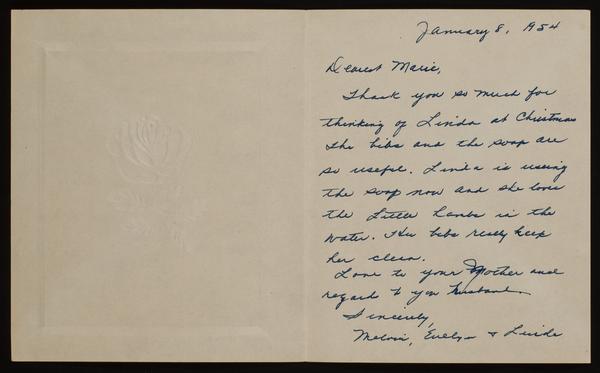 January 8, 1954
Dearest Marie,
Thank you so much for
thinking of Linda at Christmas
The bibs and the soap are
so useful. Linda is using
the soap now and she loves
the Little Lambs in the
water. The bibs really keep
her clean.
Love to your Mother and
regard to you husband.
Sincerely,
Melvin, Evelyn & Linda